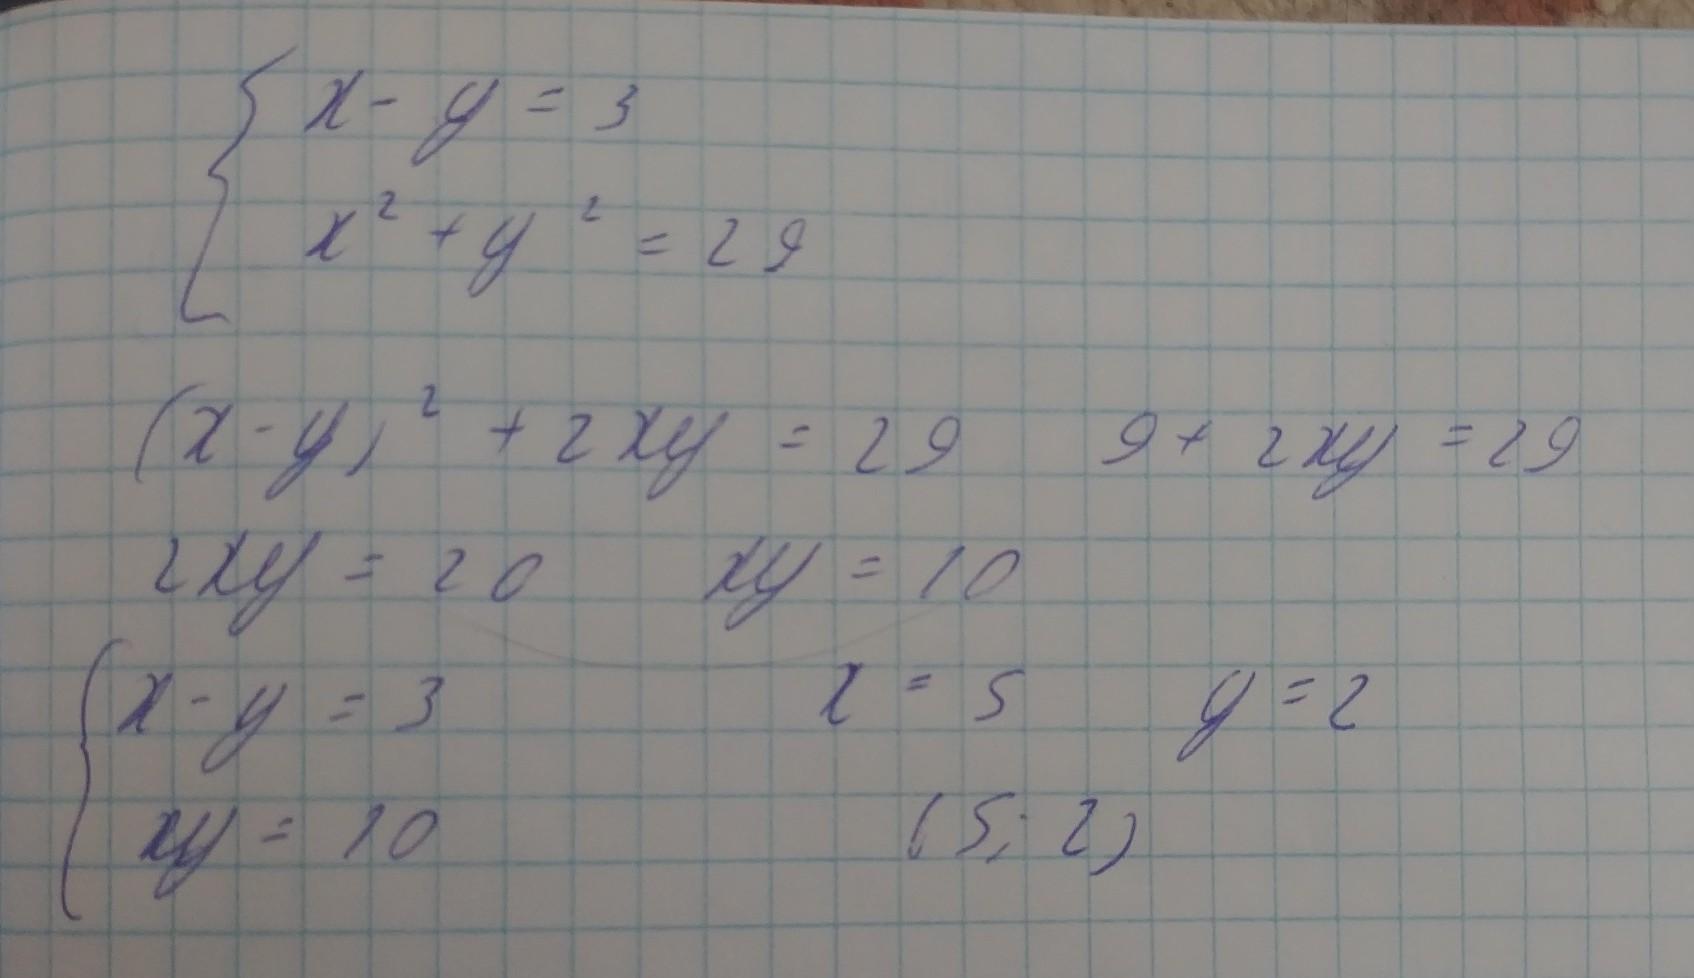 x - y = 3
x² + y² = 29
(x - y)² + 2xy = 29 9 + 2xy = 29
2xy = 20 xy = 10
x - y = 3 x = 5 y = 2
xy = 10 (5; 2)